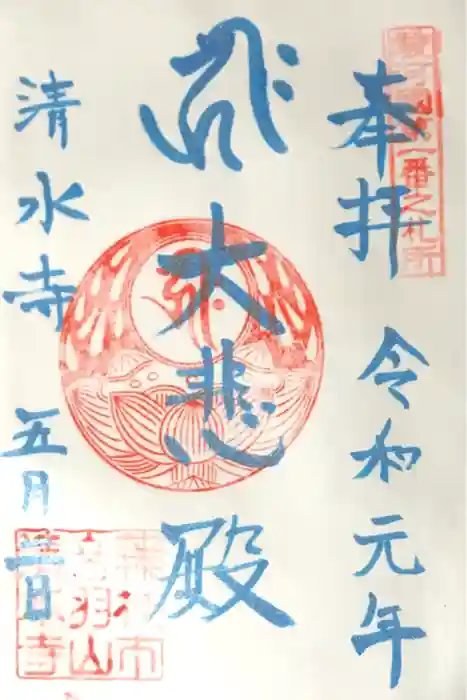 一番之札所
奉拝
令和元年
大悲殿
清水寺
五月 日
市
音羽山
清水寺